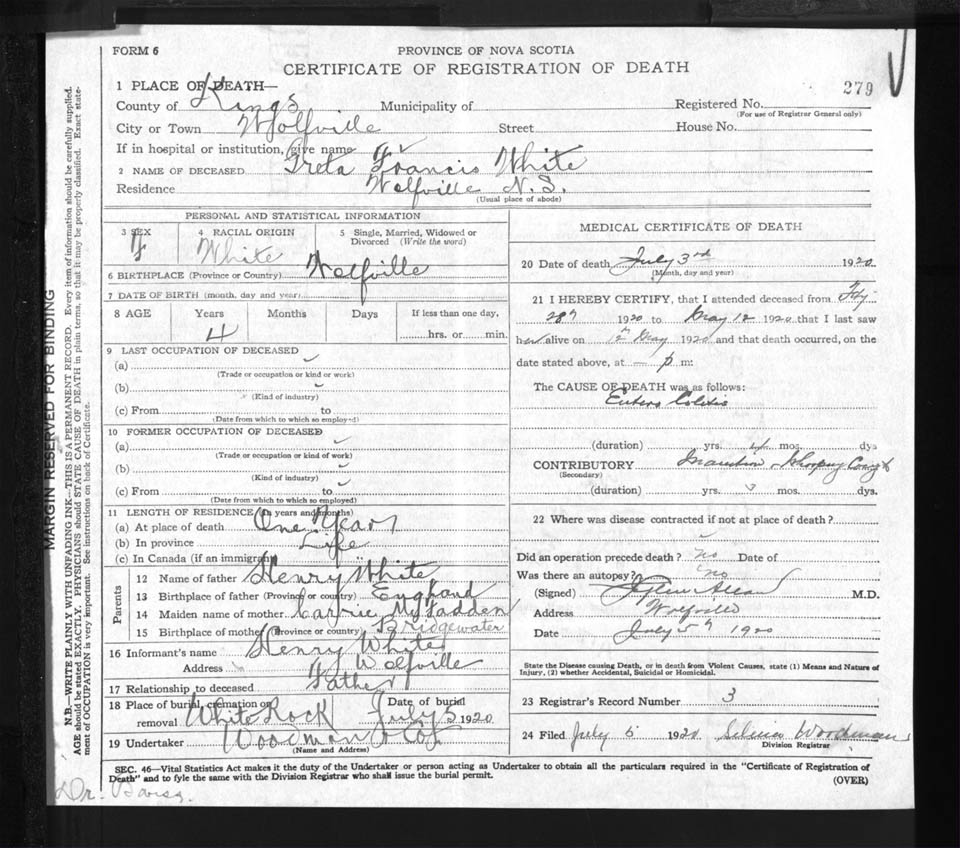 FORM 6
PROVINCE OF NOVA SCOTIA
CERTIFICATE OF REGISTRATION OF DEATH
279
1 PLACE OF DEATH—
County of Kings Municipality of Registered No.
(For use of Registrar General only)
City or Town Wolfville Street House No.
If in hospital or institution, give name
2 NAME OF DECEASED Greta Francis White
Residence Wolfville N.S.
(Usual place of abode)
PERSONAL AND STATISTICAL INFORMATION
3 SEX 4 RACIAL ORIGIN 5 Single, Married, Widowed or Divorced (Write the word)
F White
6 BIRTHPLACE (Province or Country) Wolfville
7 DATE OF BIRTH (month, day and year)
8 AGE Years Months Days If less than one day,
4 hrs. or min.
9 LAST OCCUPATION OF DECEASED
(a)
(Trade or occupation or kind or work)
(b)
(Kind of industry)
(c) From to
(Date from which to which so employed)
10 FORMER OCCUPATION OF DECEASED
(a)
(Trade or occupation or kind of work)
(b)
(Kind of industry)
(c) From to
(Date from which to which so employed)
11 LENGTH OF RESIDENCE (In years and months)
(a) At place of death One Year
(b) In province Life
(c) In Canada (if an immigrant)
Parents
12 Name of father Henry White
13 Birthplace of father (Province or country) England
14 Maiden name of mother Carrie McFadden
15 Birthplace of mother (Province or country) Bridgewater
16 Informant's name Henry White
Address Wolfville
17 Relationship to deceased Father
18 Place of burial, cremation or removal White Rock Date of burial July 5 1920
19 Undertaker Woodman & Co.
(Name and Address)
MEDICAL CERTIFICATE OF DEATH
20 Date of death July 3rd 1920
(Month, day and year)
21 I HEREBY CERTIFY, that I attended deceased from
28th 1920 to May 12 1920 that I last saw
her alive on 12th May 1920 and that death occurred, on the
date stated above, at — p m:
The CAUSE OF DEATH was as follows:
Entero Colitis
(duration) yrs. 4 mos. dys
CONTRIBUTORY Inanition Whooping Cough
(Secondary)
(duration) yrs. 3 mos. dys.
22 Where was disease contracted if not at place of death?
Did an operation precede death? no Date of
Was there an autopsy? no
(Signed) M.D.
Address Wolfville
Date July 5th 1920
State the Disease causing Death, or in death from Violent Causes, state (1) Means and Nature of
Injury, (2) whether Accidental, Suicidal or Homicidal.
23 Registrar's Record Number 3
24 Filed July 6 1920 Woodman
Division Registrar
SEC. 46—Vital Statistics Act makes it the duty of the Undertaker or person acting as Undertaker to obtain all the particulars required in the "Certificate of Registration of
Death" and to fyle the same with the Division Registrar who shall issue the burial permit.
(OVER)
Dr.
MARGIN RESERVED FOR BINDING
N.B.—WRITE PLAINLY WITH UNFADING INK—THIS IS A PERMANENT RECORD. Every item of information should be carefully supplied.
AGE should be stated EXACTLY. PHYSICIANS should STATE CAUSE OF DEATH in plain terms, so that it may be properly classified. Exact state-
ment of OCCUPATION is very important. See instructions on back of Certificate.